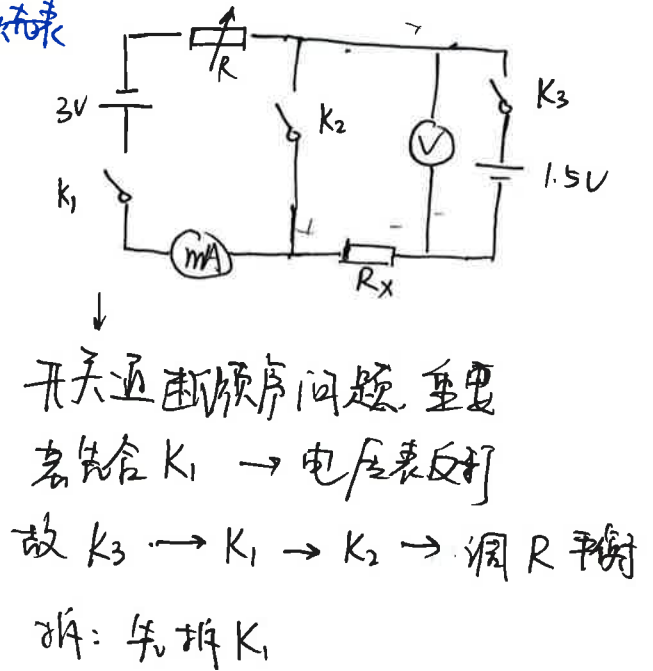 R
3V
K₂
K₃
V
1.5V
K₁
mA
Rx
↓
开关通断顺序问题. 重要
若先合 K₁ → 电压表反打
故 K₃ → K₁ → K₂ → 调 R 平衡
拆: 先拆 K₁